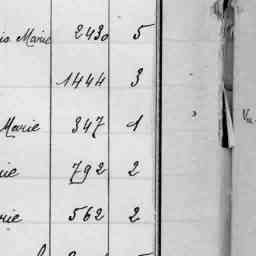 is Marie 2430 5
1444 3
Marie 347 1
rie 792 2
rie 562 2